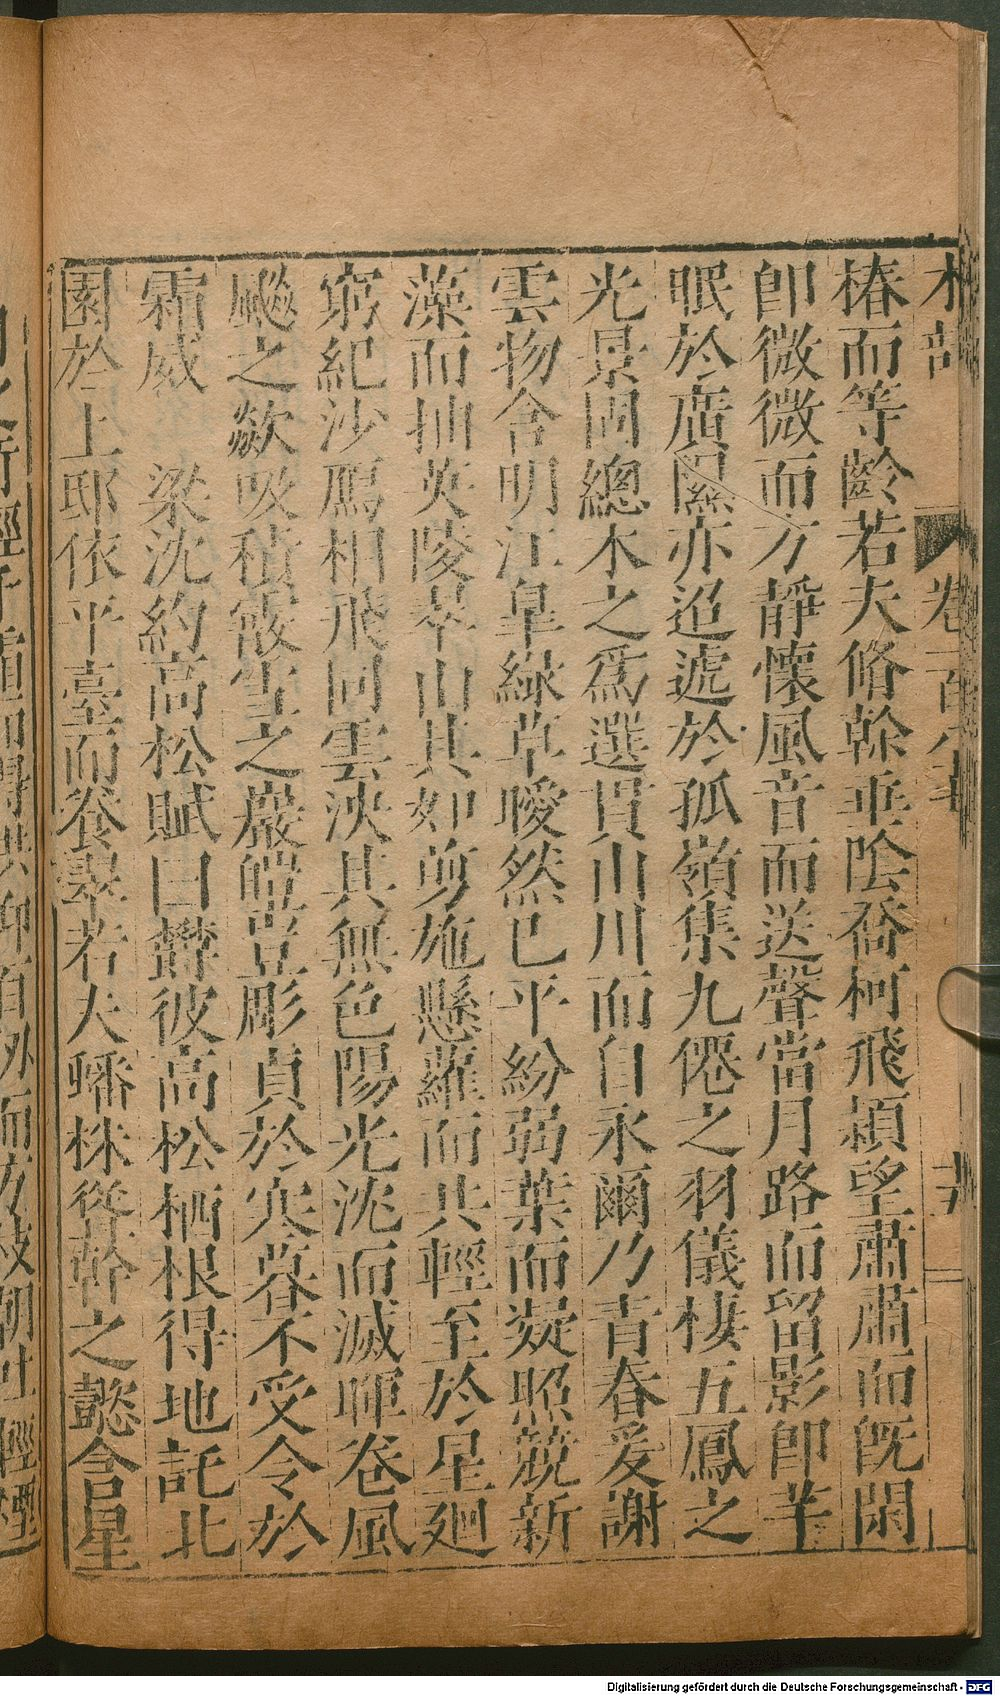 木部
卷一百八十
椿而等齡若夫脩幹垂陰喬柯飛穎望肅肅而旣閑
卽微微而方靜懷風音而送聲當月路而留影卽芊
眠於廣隰亦迢遞於孤嶺集九僊之羽儀棲五鳳之
光景固總木之爲選貫山川而自永爾乃青春爰謝
雲物含明江皐綠草曖然已平紛弱葉而凝照競新
藻而抽英陵翠山其如剪施懸蘿而共輕至於星廻
窮紀沙鴈相飛同雲泱其無色陽光沈而滅暉卷風
飈之歘吸積霰雪之巖皚豈彫貞於寒暮不受令於
霜威　梁沈約高松賦曰鬱彼高松栖根得地託北
園於上邸依平臺而養翠若夫蟠株聳幹之懿含星
Digitalisierung gefördert durch die Deutsche Forschungsgemeinschaft - DFG